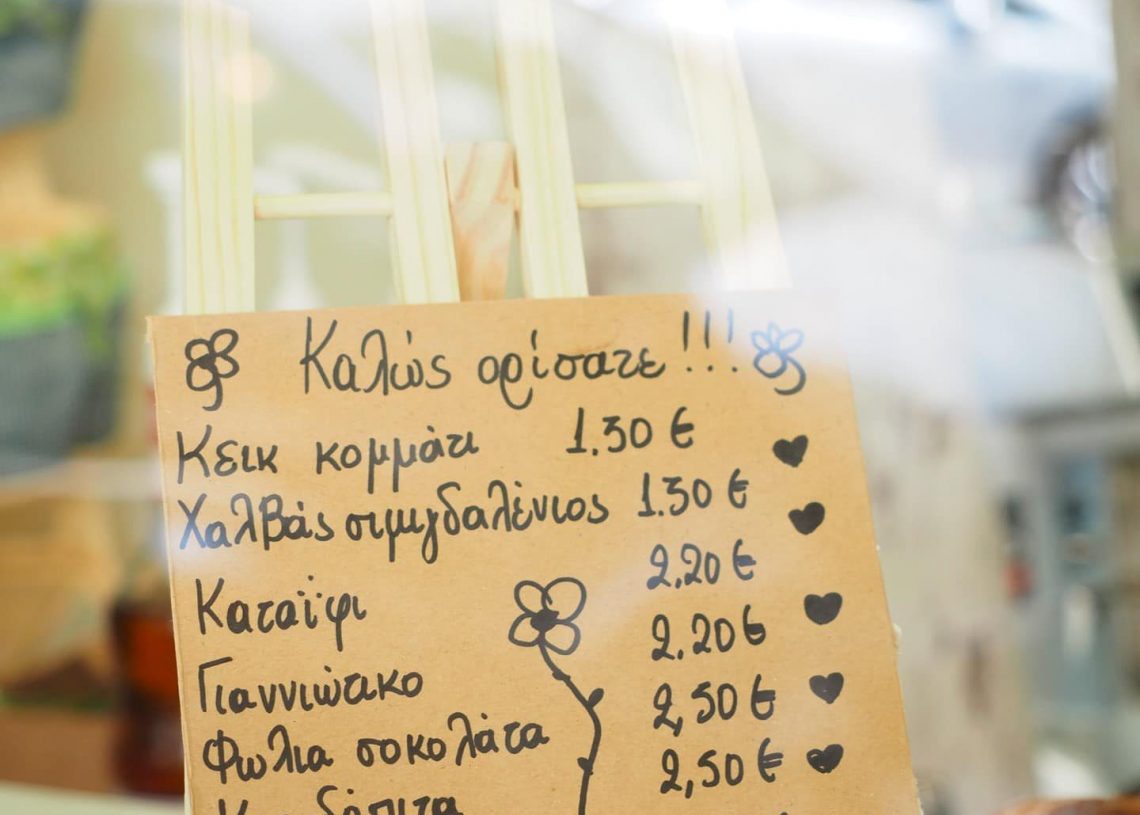 Καλώς ορίσατε !!!
Κεικ κομμάτι 1.30 €
Χαλβάς σιμιγδαλένιος 1.30 €
Καταϊφι 2.20 €
Γιαννιώτικο 2.20 €
Φωλια σοκολάτα 2,50 €
2,50 €